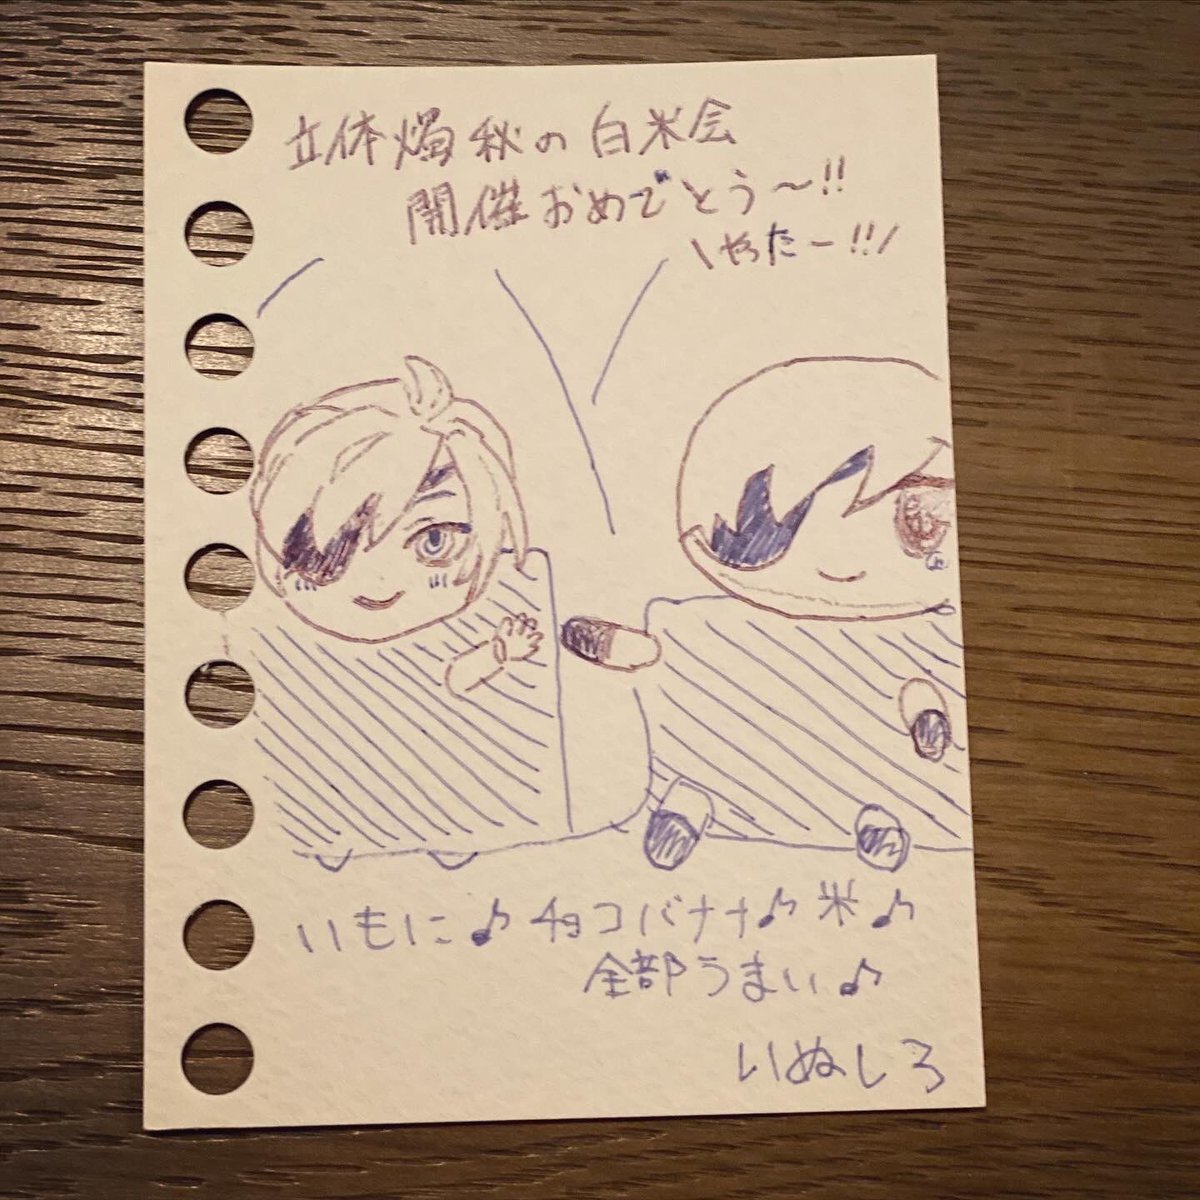 立体燭秋の白米会
開催おめでとう〜!!
\やったー!!/
いもに♪チョコバナナ♪米♪
全部うまい♪
いぬしろ